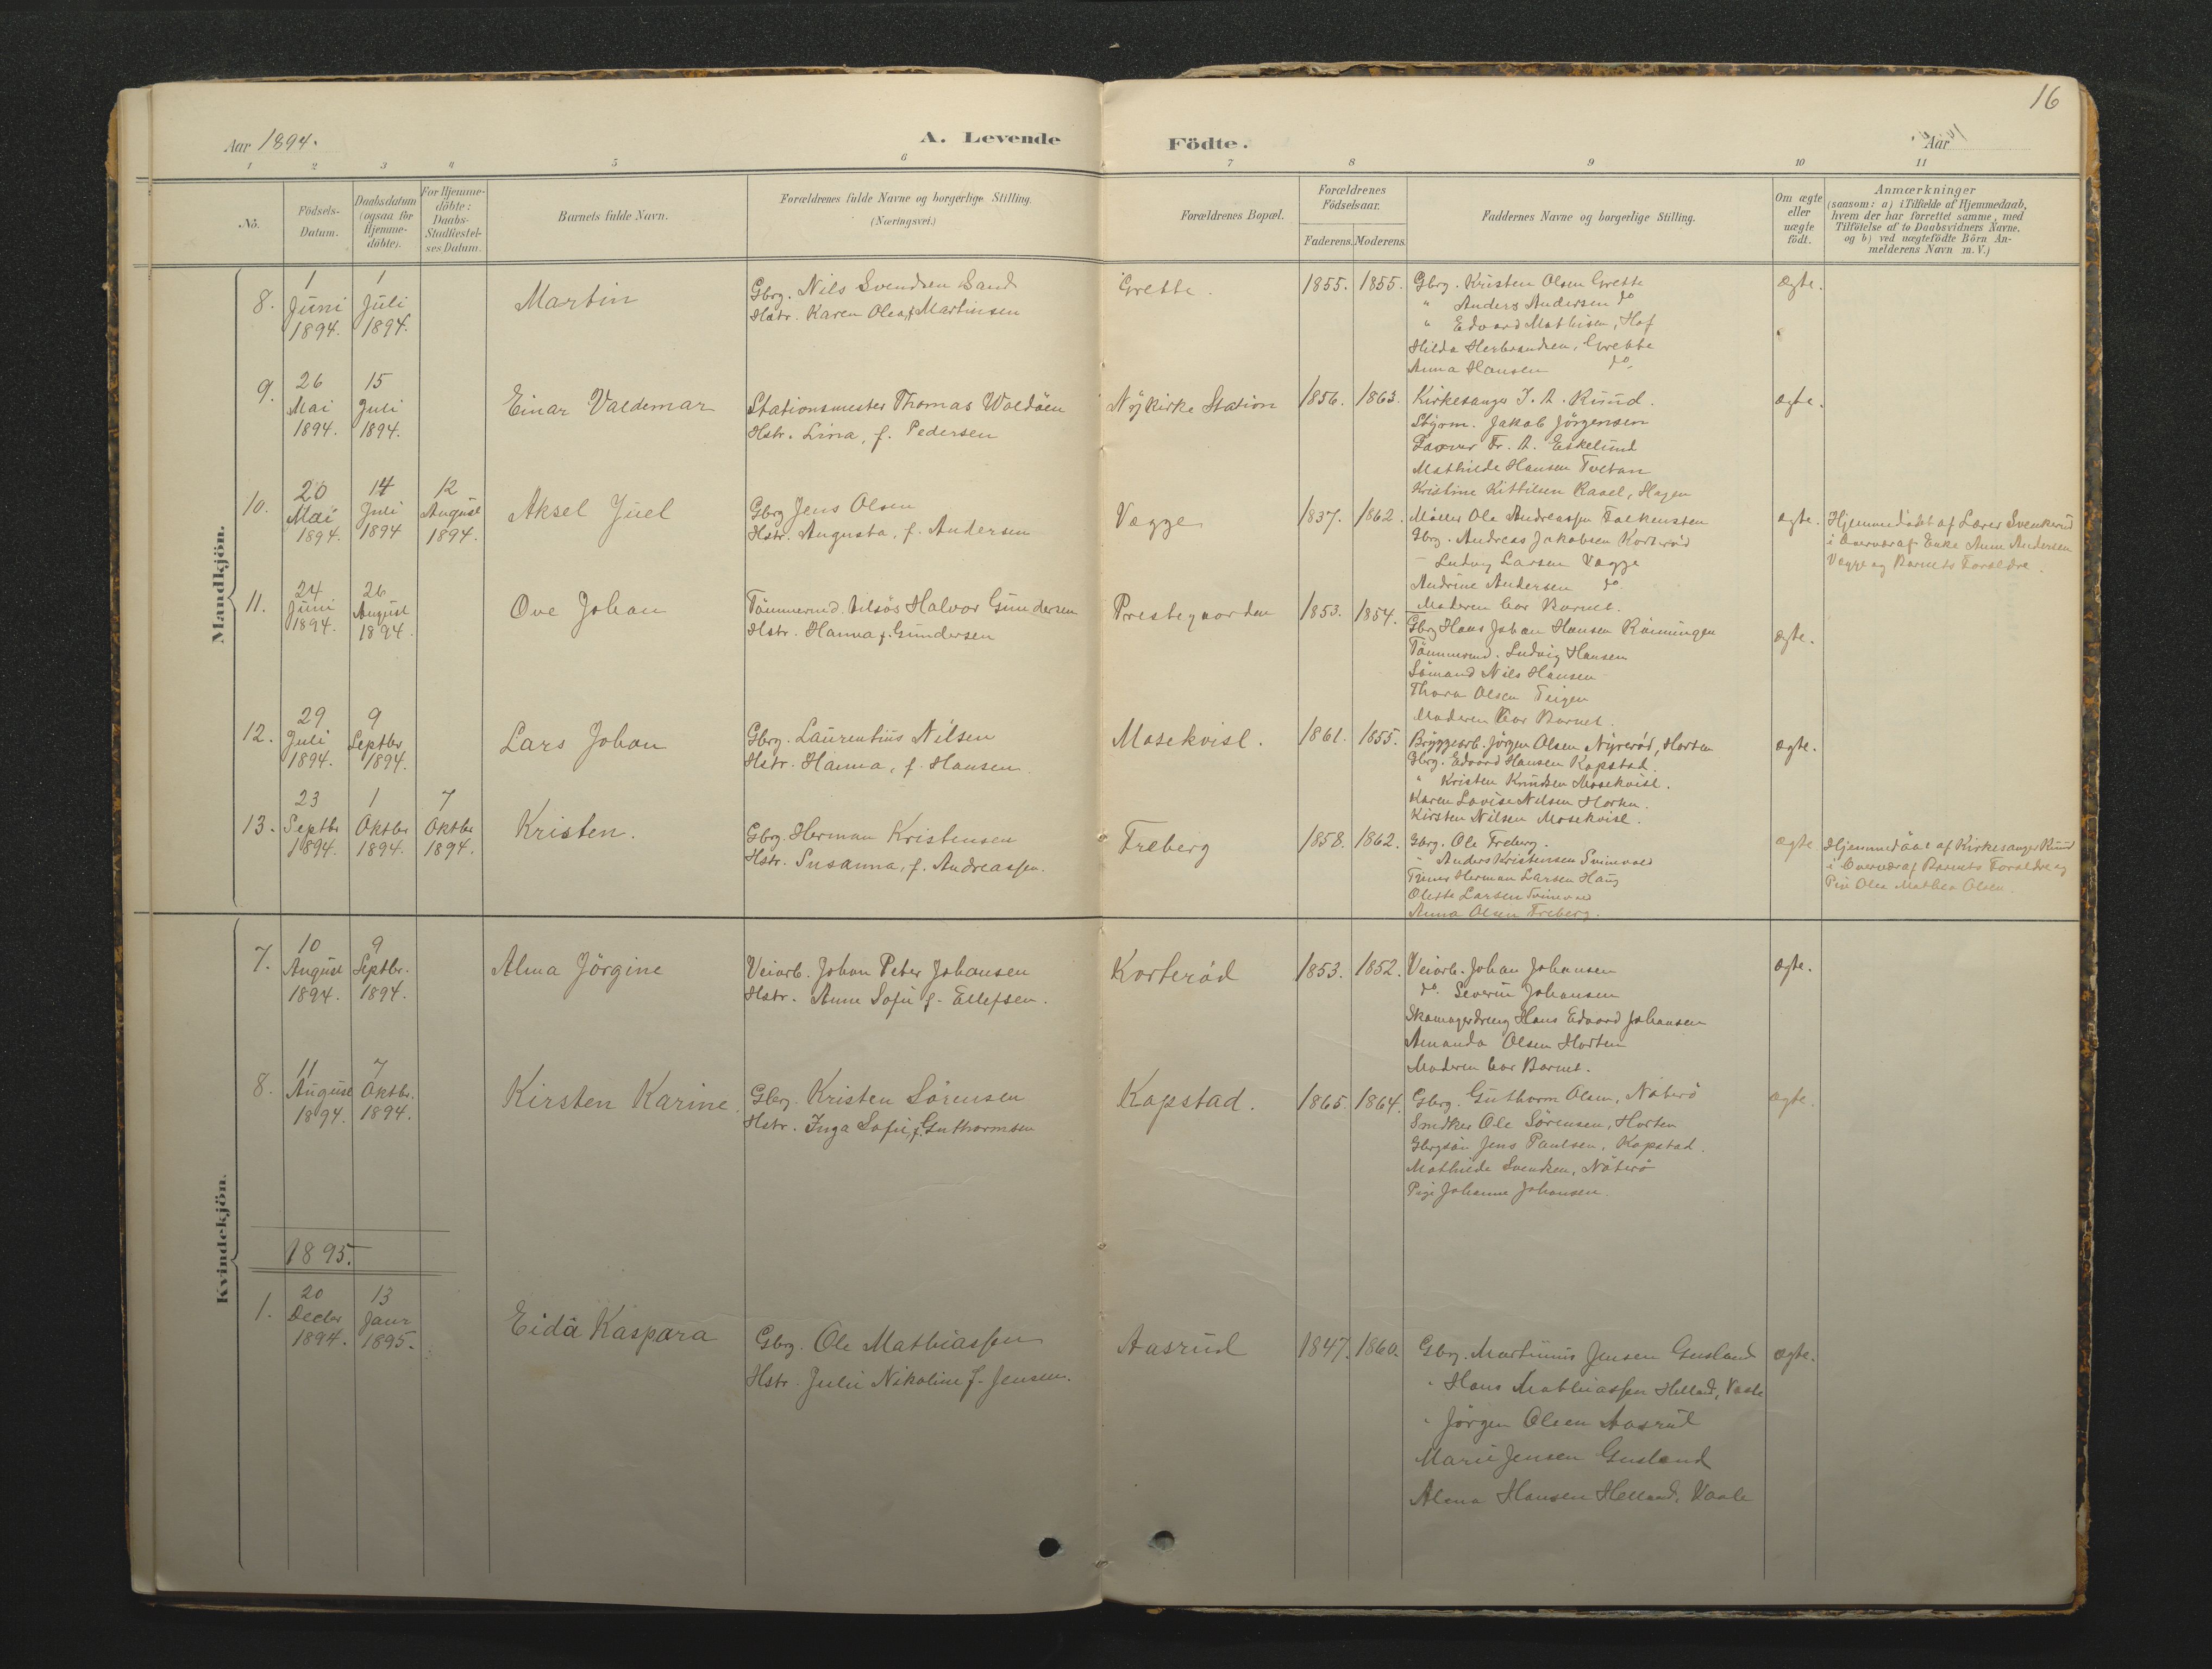 16
Aar 1894.
A. Levende
Födte.
Aar
1 2 3 4 5 6 7 8 9 10 11
No.
Födsels-Datum.
Daabsdatum (ogsaa for Hjemme-döbte).
For Hjemme-döbte: Daabs-Stadfæstel-ses Datum.
Barnets fulde Navn.
Forældrenes fulde Navne og borgerlige Stilling.
(Næringsvei.)
Forældrenes Bopæl.
Forældrenes Födselsaar.
Faderens. Moderens.
Faddernes Navne og borgerlige Stilling.
Om ægte eller uægte födt.
Anmærkninger
(saasom: a) i Tilfælde af Hjemmedaab,
hvem der har forrettet samme, med
Tilföielse af to Daabsvidners Navne,
og b) ved uægtefödte Börn An-
melderens Navn m. V.)
Mandkjön.
8. 1 Juni 1894. 1 Juli 1894.
Martin
Gbrg. Nils Svendsen Sand
Hstr. Karen Olea f. Martinsen
Grette.
1855. 1855.
Gbrg. Kristen Olsen Grette
" Anders Andersen do
" Edvard Mathisen, Hof
Hilda Herbrandsen, Grette
Anna Hansen do.
ægte.
9. 26 Mai 1894. 15 Juli 1894.
Einar Valdemar
Stationsmester Thomas Woldöen
Hstr. Lina, f. Pedersen
Nykirke Station
1856. 1863.
Kirkesanger J. A. Ruud.
Styrm. Jakob Jörgensen
Fr. A. Eskelund
Mathilde Hansen Tvetan
Kristine Kittilsen Ravel, Hagen
ægte.
10. 20 Mai 1894. 14 Juli 1894 12 August 1894.
Aksel Juel
Gbrg Jens Olsen
Hstr. Augusta, f. Andersen
Vægge
1837. 1862.
Möller Ole Andreassen Falkensten
Gbrg. Andreas Jakobsen Korteröd
– Ludvig Larsen Vægge
Andrine Andersen do
Moderen bar Barnet.
ægte.
Hjemmedöbt af Lærer Svenkerud
i Overvær af Enke Anne Andersen
Vægge og Barnets Forældre.
11. 24 Juni 1894. 26 August 1894.
Ove Johan
Tömmermd. Halvor Gundersen
Hstr. Hanna f. Gundersen
Prestegaarden
1853. 1854.
Gbrg Hans Johan Hansen Rönningen
Tömmermd. Ludvig Hansen
Sömand Nils Hansen
Thora Olsen Teigen
Moderen bar Barnet.
ægte.
12. 29 Juli 1894. 9 Septbr 1894.
Lars Johan
Gbrg. Laurentius Nilsen
Hstr. Hanna, f. Hansen.
Mosekvisl.
1861. 1855.
Bryggearb. Jörgen Olsen Nyreröd, Horten
Gbrg. Edvard Hansen Kopstad.
" Kristen Knudsen Mosekvisl.
Karen Lovise Nilsen Horten.
Kirsten Nilsen Mosekvisl.
ægte.
13. 23 Septbr 1894. 1 Oktbr 1894. 7 Oktbr 1894.
Kristen.
Gbrg. Herman Kristensen
Hstr. Susanna, f. Andreassen.
Freberg
1858. 1862.
Gbrg. Ole Freberg.
" Anders Kristensen Svinevold
Tjener Herman Larsen Haug
Olette Larsen
Anna Olsen Freberg.
ægte
Hjemmedöbt af Kirkesanger Ruud
i Overvær af Barnets Forældre og
Olea Mathea Olsen.
Kvindekjön.
7. 10 August 1894. 9 Septbr. 1894.
Alma Jörgine
Veiarb. Johan Peter Johansen
Hstr. Anne Sofie f. Ellefsen.
Korteröd
1853. 1852.
Veiarb. Johan Johansen
do. Severin Johansen
Skomagerdreng Hans Edvard Johansen
Amanda Olsen Horten
Moderen bar Barnet.
ægte.
8. 11 August 1894. 7 Oktbr. 1894.
Kirsten Karine.
Gbrg. Kristen Sörensen
Hstr. Inga Sofie f. Guthormsen
Kopstad.
1865. 1864.
Gbrg. Guthorm Olsen, Nöterö
Snedker Ole Sörensen, Horten
Gbrgsön Jens Paulsen, Kopstad.
Mathilde Svendsen, Nöterö
Pige Johanne Johansen.
ægte.
1895.
1. 20 Decbr 1894. 13 Janr 1895.
Eida Kaspara
Gbrg. Ole Mathiassen
Hstr. Julie Nikoline f. Jensen.
Aasrud
1847. 1860.
Gbrg. Martinius Jensen Gusland
" Hans Mathiassen Helland, Vaale
" Jörgen Olsen Aasrud
Marie Jensen Gusland
Alma Hansen Helland, Vaale
ægte.